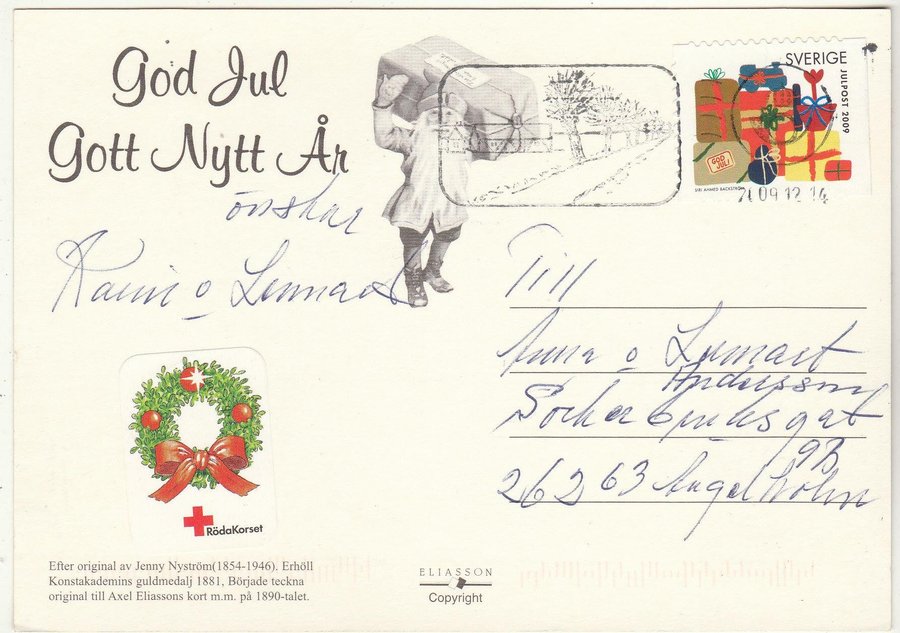 God Jul
Gott Nytt År
önskar
Karin o Lennart
SVERIGE
JULPOST 2009
GOD JUL!
SIRI AHMED BACKSTRÖM
09 12 14
Till
Anna o Lennart
Andersson
Sockerbruksgat
9B
26263 Ängelholm
RödaKorset
Efter original av Jenny Nyström(1854-1946). Erhöll
Konstakademins guldmedalj 1881, Började teckna
original till Axel Eliassons kort m.m. på 1890-talet.
ELIASSON
Copyright